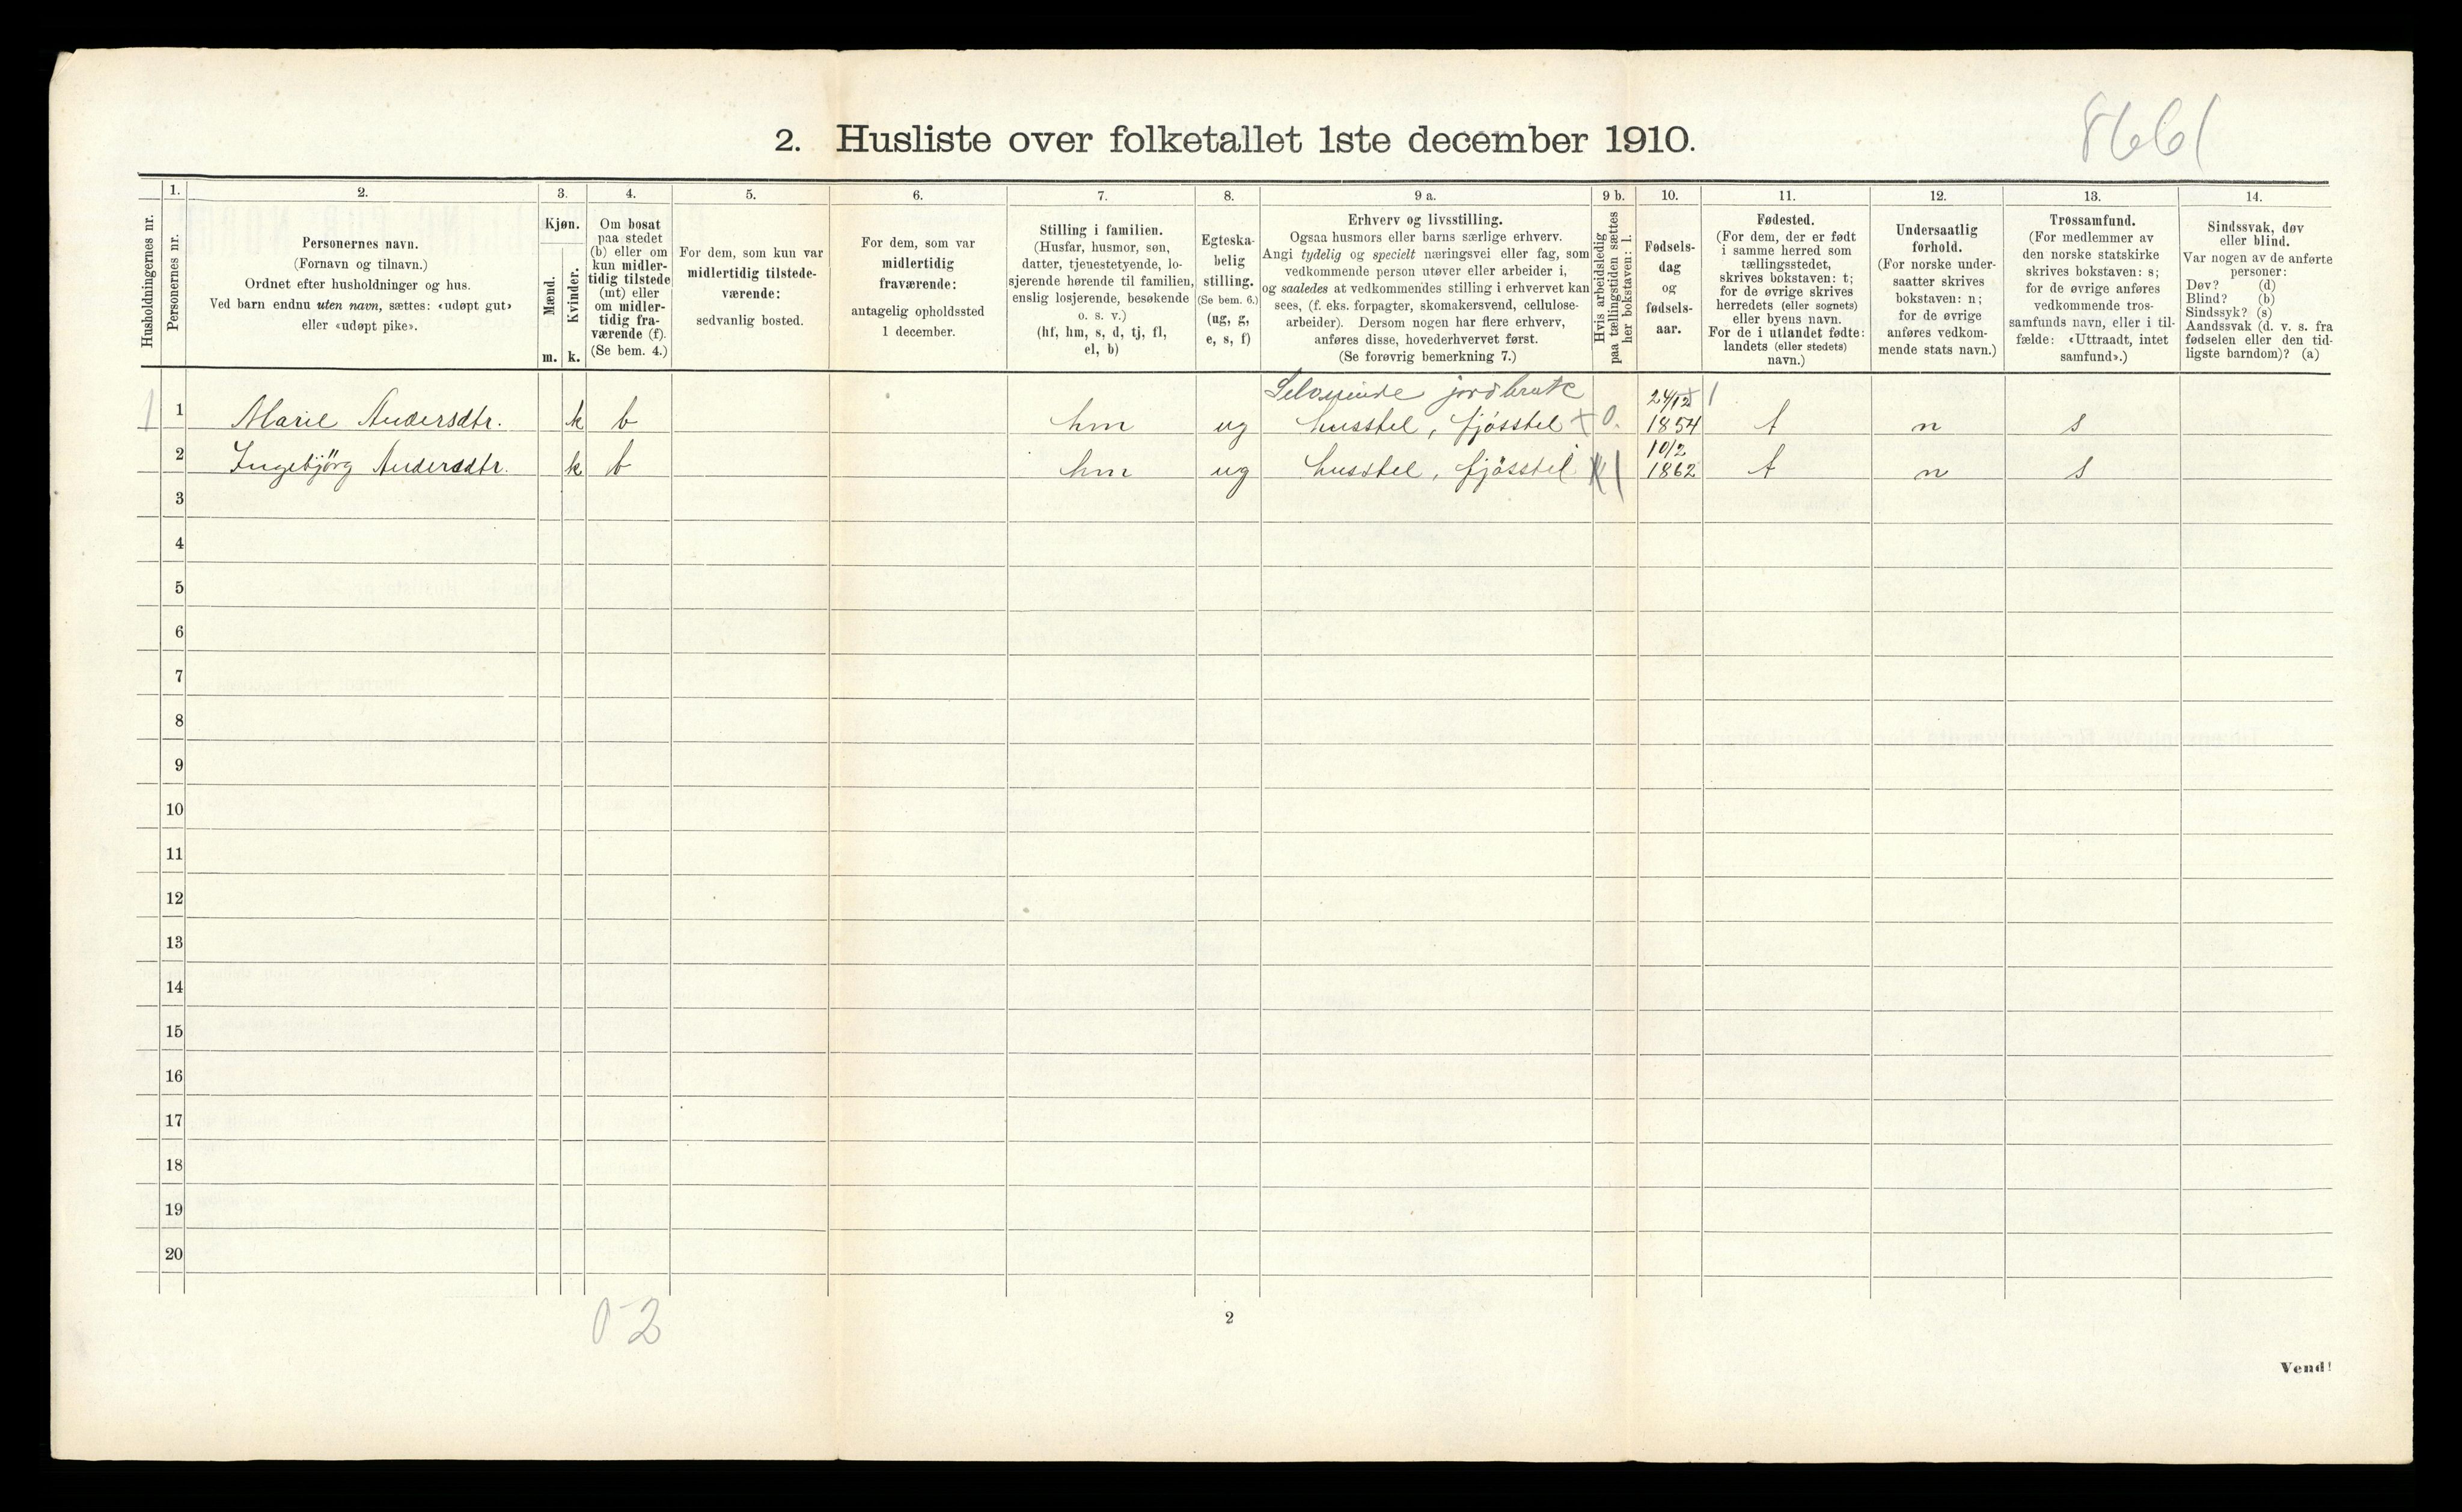 8661
2. Husliste over folketallet 1ste december 1910.
Husholdningernes nr.
1.
Personernes nr.
2.
Personernes navn.
(Fornavn og tilnavn.)
Ordnet efter husholdninger og hus.
Ved barn endnu uten navn, sættes: «udøpt gut»
eller «udøpt pike».
3.
Kjøn.
Mænd.
m.
Kvinder.
k.
4.
Om bosat
paa stedet
(b) eller om
kun midler-
tidig tilstede
(mt) eller
om midler-
tidig fra-
værende (f).
(Se bem. 4.)
5.
For dem, som kun var
midlertidig tilstede-
værende:
sedvanlig bosted.
6.
For dem, som var
midlertidig
fraværende:
antagelig opholdssted
1 december.
7.
Stilling i familien.
(Husfar, husmor, søn,
datter, tjenestetyende, lo-
sjerende hørende til familien,
enslig losjerende, besøkende
o. s. v.)
(hf, hm, s, d, tj, fl,
el, b)
8.
Egteska-
belig
stilling.
(Se bem. 6.)
(ug, g,
e, s, f)
9 a.
Erhverv og livsstilling.
Ogsaa husmors eller barns særlige erhverv.
Angi tydelig og specielt næringsvei eller fag, som
vedkommende person utøver eller arbeider i,
og saaledes at vedkommendes stilling i erhvervet kan
sees, (f. eks. forpagter, skomakersvend, cellulose-
arbeider). Dersom nogen har flere erhverv,
anføres disse, hovederhvervet først.
(Se forøvrig bemerkning 7.)
9 b.
Hvis arbeidsledig
paa tællingstiden sættes
her bokstaven: l.
10.
Fødsels-
dag
og
fødsels-
aar.
11.
Fødested.
(For dem, der er født
i samme herred som
tællingsstedet,
skrives bokstaven: t;
for de øvrige skrives
herredets (eller sognets)
eller byens navn.
For de i utlandet fødte:
landets (eller stedets)
navn.)
12.
Undersaatlig
forhold.
(For norske under-
saatter skrives
bokstaven: n;
for de øvrige
anføres vedkom-
mende stats navn.)
13.
Trossamfund.
(For medlemmer av
den norske statskirke
skrives bokstaven: s;
for de øvrige anføres
vedkommende tros-
samfunds navn, eller i til-
fælde: «Uttraadt, intet
samfund».)
14.
Sindssvak, døv
eller blind.
Var nogen av de anførte
personer:
Døv? (d)
Blind? (b)
Sindssyk? (s)
Aandssvak (d. v. s. fra
fødselen eller den tid-
ligste barndom)? (a)
Selveiende jordbruk
24/12
1 1 Marie Andersdtr. k b hm ug husstel, fjösstel + 0. 1854 t n s
10/2
2 Ingebjörg Andersdtr. k b hm ug husstel, fjösstel 1862 t n s
3
4
5
6
7
8
9
10
11
12
13
14
15
16
17
18
19
20
0-2
2
Vend!